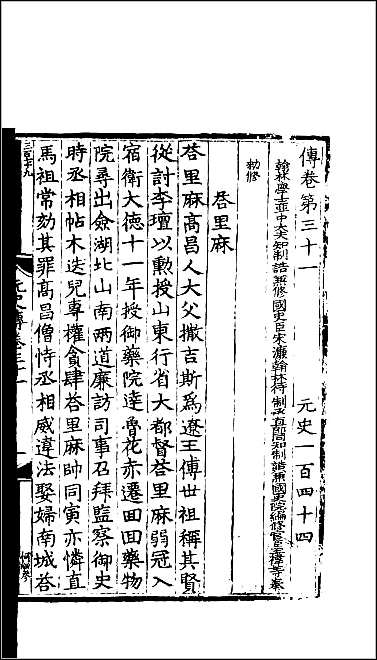 傳卷第三十一　元史一百四十四
翰林學士亞中大夫知制誥兼修國史臣宋濂翰林待制承直郎同知制誥兼國史院編修官臣王禕等奉
勑修
荅里麻
荅里麻高昌人大父撒吉斯爲遼王傅世祖稱其賢
從討李璮以勲授山東行省大都督荅里麻弱冠入
宿衛大德十一年授御藥院達魯花赤遷回回藥物
院尋出僉湖北山南兩道廉訪司事召拜監察御史
時丞相帖木迭兒專權貪肆荅里麻帥同寅亦憐直
馬祖常劾其罪高昌僧恃丞相威違法娶婦南城荅